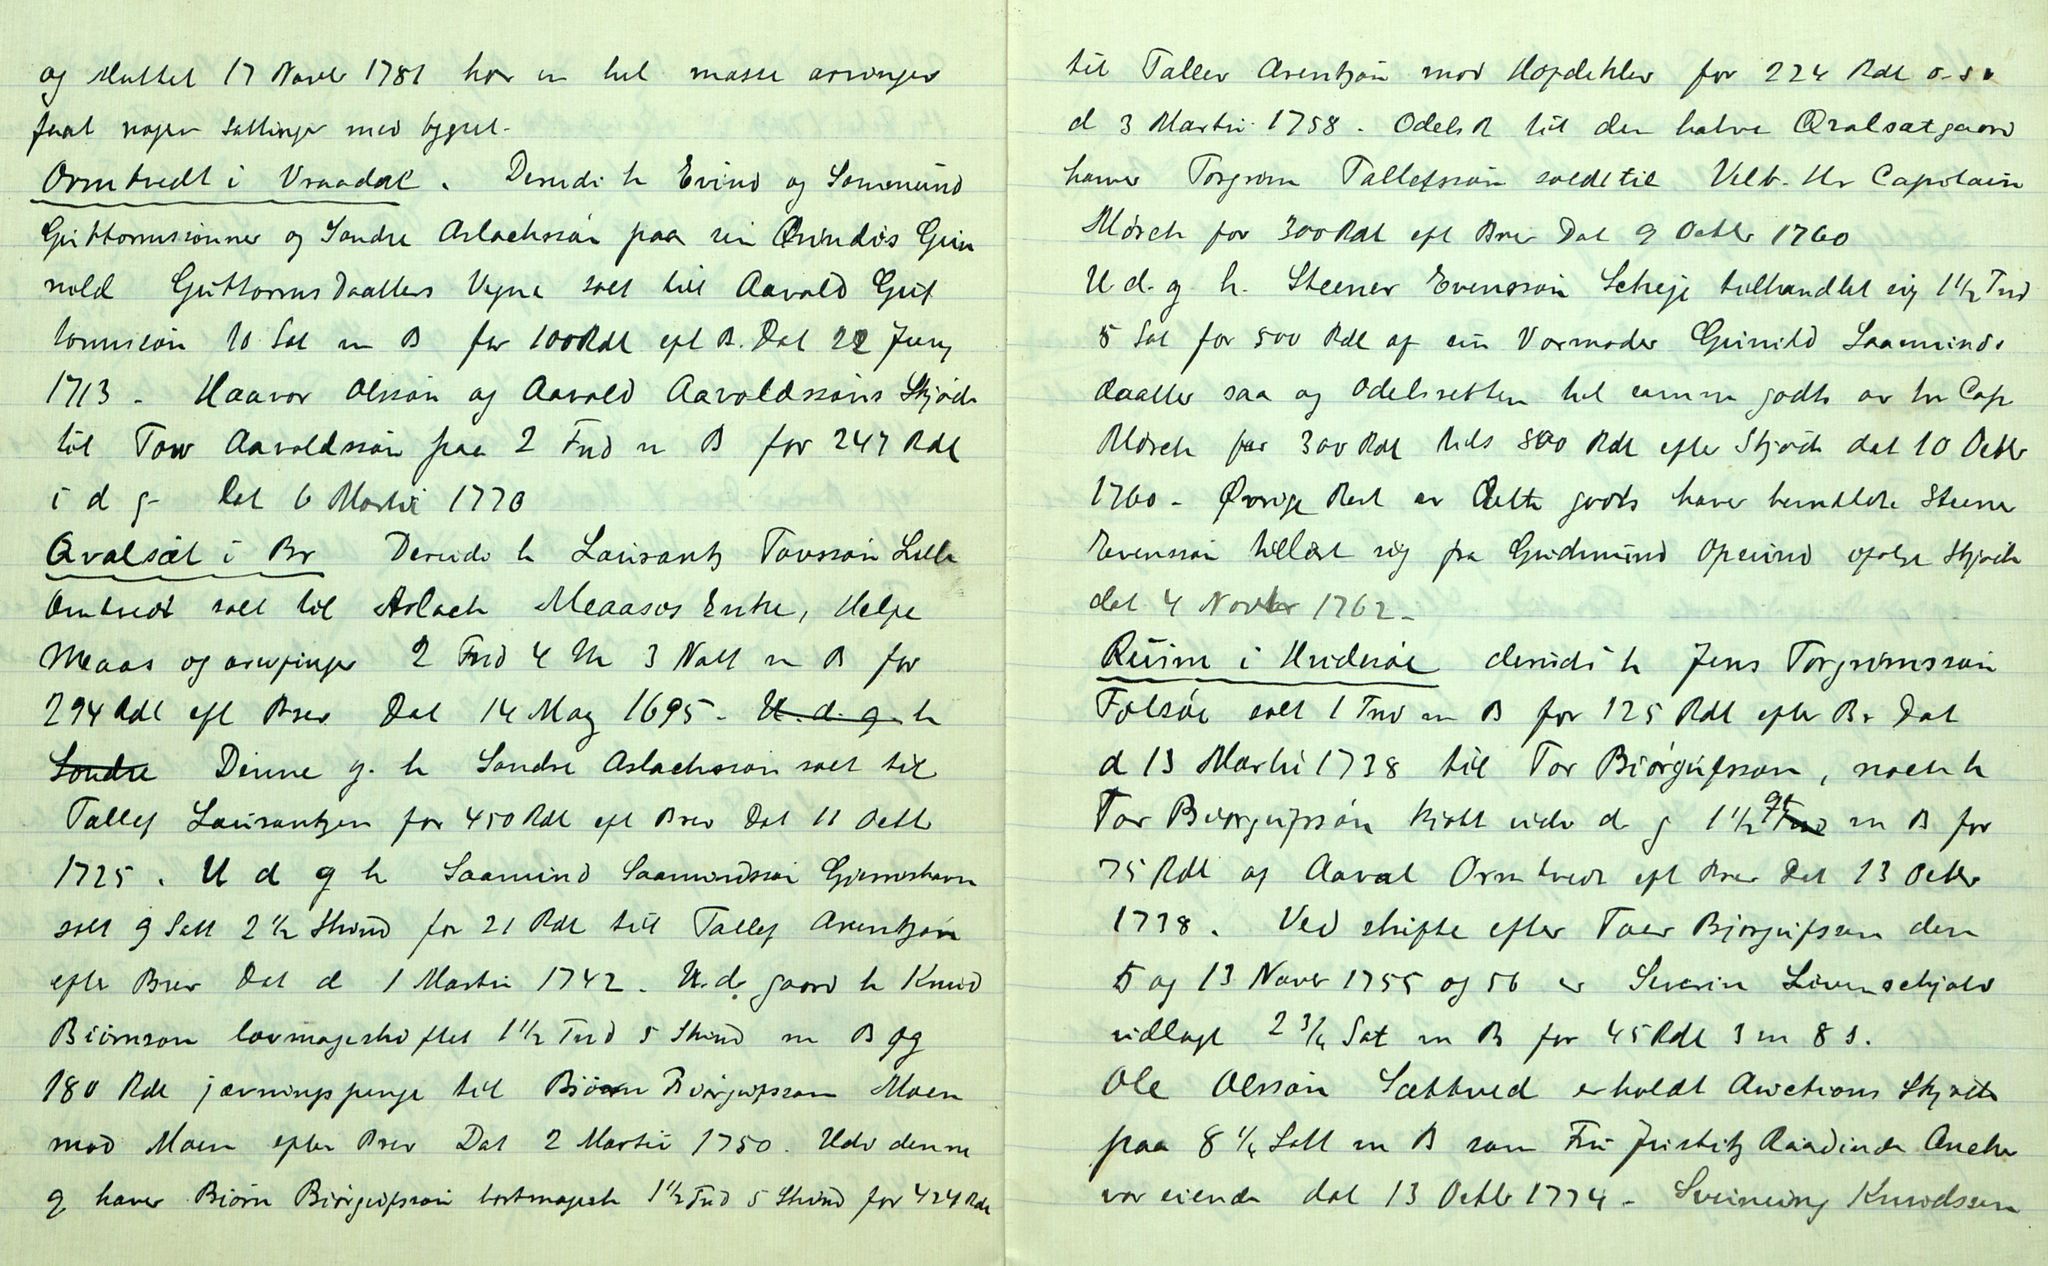 og sluttet 17 Novbr 1781 har en hel masse arvinger
faat nogen sættinger med bygsel.
Ormtvedt i Vraadal. Derudi h Evind og Samund
Guttormssønner og Sondre Aslachssøn paa sin Qvindes Gun
nild Guttormsdaatters Vegne solt till Aavold Gut
tormssøn 10 Sat m B for 100 Rdl eft B. Dat 22 Juny
1713 - Haavor Olssøn og Aavold Aavoldssøns Skjøde
til Tow Aavoldssøn paa 2 Tnd m B for 247 Rdl
i d g- Dat 6 Martii 1770
Qvalsæt i Br Derudi h Laurantz Tovssøn Lille
Omtvedt solt til Aslach Meaasos Enke, Helge
Meaas og arvginger 2 Tnd 4 Hr 3 Natt m B for
294 Rdl eft Brev Dat 14 May 1695 - U. d. g. h
Sondre Denne g. h Sondre Aslachsson solt til
Tallef Laurantzen for 450 Rdl eft Brev Dat 11 Octb
1725. U d g h Saamund Saamundssøn
solt 9 Satt 2 1/2 Skind for 21 Rdl till Tallef Arentzøn
efter Brev Dat d 1 Martii 1742. U. d. gaard h Knud
Biørnson lovmageskiftet 1 1/2 Tnd 5 Skind m B og
180 Rdl jævningspenge til Bjørn Biørgufsson Moen
mod Moen efter Brev Dat 2 Martii 1750. Udi denne
g haver Biørn Biørgufsson bortmagesk 1 1/2 Tnd 5 Skind for 424 Rdl
til Tallev Arentzøn mod Hopdekler for 224 Rdl o-sv
d 3 Martii 1758. Odels R til den halve Qvalsætgaard
haver Torgrim Tallefssøn soldt til Velb. Hr Capitain
Mørch for 300 Rdl eft Brev Dat 9 Octbr 1760
U. d. g h. Steener Evenssøn Scheje tilhandlet sig 1 1/2 Tnd
5 Sat for 500 Rdl af sin Vormoder Gunild Saamunds
daatter saa og Odelsretten til samme gods av hr Cap
Mørch for 300 Rdl tils 800 Rdl efter Skjøde dat 10 Octbr
1760 - Øvrige Rest av dette gods haver bemeldte Steener
Evenssøn tilløst sig fra Gudmund Opsund ifølge Skjøde
dat 4 Novbr 1762 -
Ruim i Hvidesøe derudi h Jens Torgrimssøn
Folsøe solt 1 Tnd m B for 125 Rdl efter Br Dat
d 13 Martii 1738 til Tor Biørgufsson, noch h
Tor Biørgufssøn kjøbt udi d g 1 1/2 qt Tnd m B for
75 Rdl af Aavat Ormtvedt eft Brev Dat 13 Octbr
1738. Ved skifte efter Toer Bjørgufssen den
5 og 13 Novbr 1755 og 56 er Severin Livenschjold
udlagt 2 3/4 Sat m B for 45 Rdl 3 m 8 s.
Ole Olssøn Sættved erholdt Auctions Skjøde
paa 8 1/4 Satt m B som Fru Justitz Raadinde Ancher
var eiende dat 13 Octbr 1774 - Sveinung Knudssen